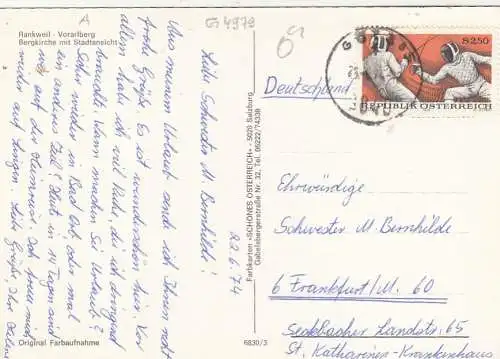 A
G 4979
Rankweil - Vorarlberg
Bergkirche mit Stadtansicht
22.6.74
Liebe Schwester M. Bernhilde!
Aus meinem Urlaub sende ich Ihnen recht
frohe Grüße. Es ist wunderschön hier. Vor
allem habe ich viel Ruhe, die ich dringend
brauchte. Wann machen Sie Urlaub?
Sehr wieder in Bad Ort, oder mal
ein anderes Ziel? Heute in 14 Tagen sind
wir auf der Heimreise. Ich freue mich
wieder auf Lingen. Liebe Grüße, Ihre
Original Farbaufnahme
6830/3
Farbkarten »SCHÖNES ÖSTERREICH« · 5020 Salzburg
Gabelsbergerstraße Nr. 32, Tel. 06222/74338
S 2.50
REPUBLIK ÖSTERREICH
GÖTZIS
6840
Deutschland
Ehrwürdige
Schwester M. Bernhilde
6 Frankfurt/M. 60
Seckbacher Landstr. 65
St. Katharinen-Krankenhaus